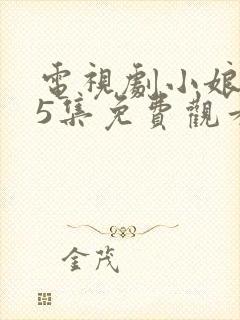 電視劇小娘
5集免費觀看
金茂